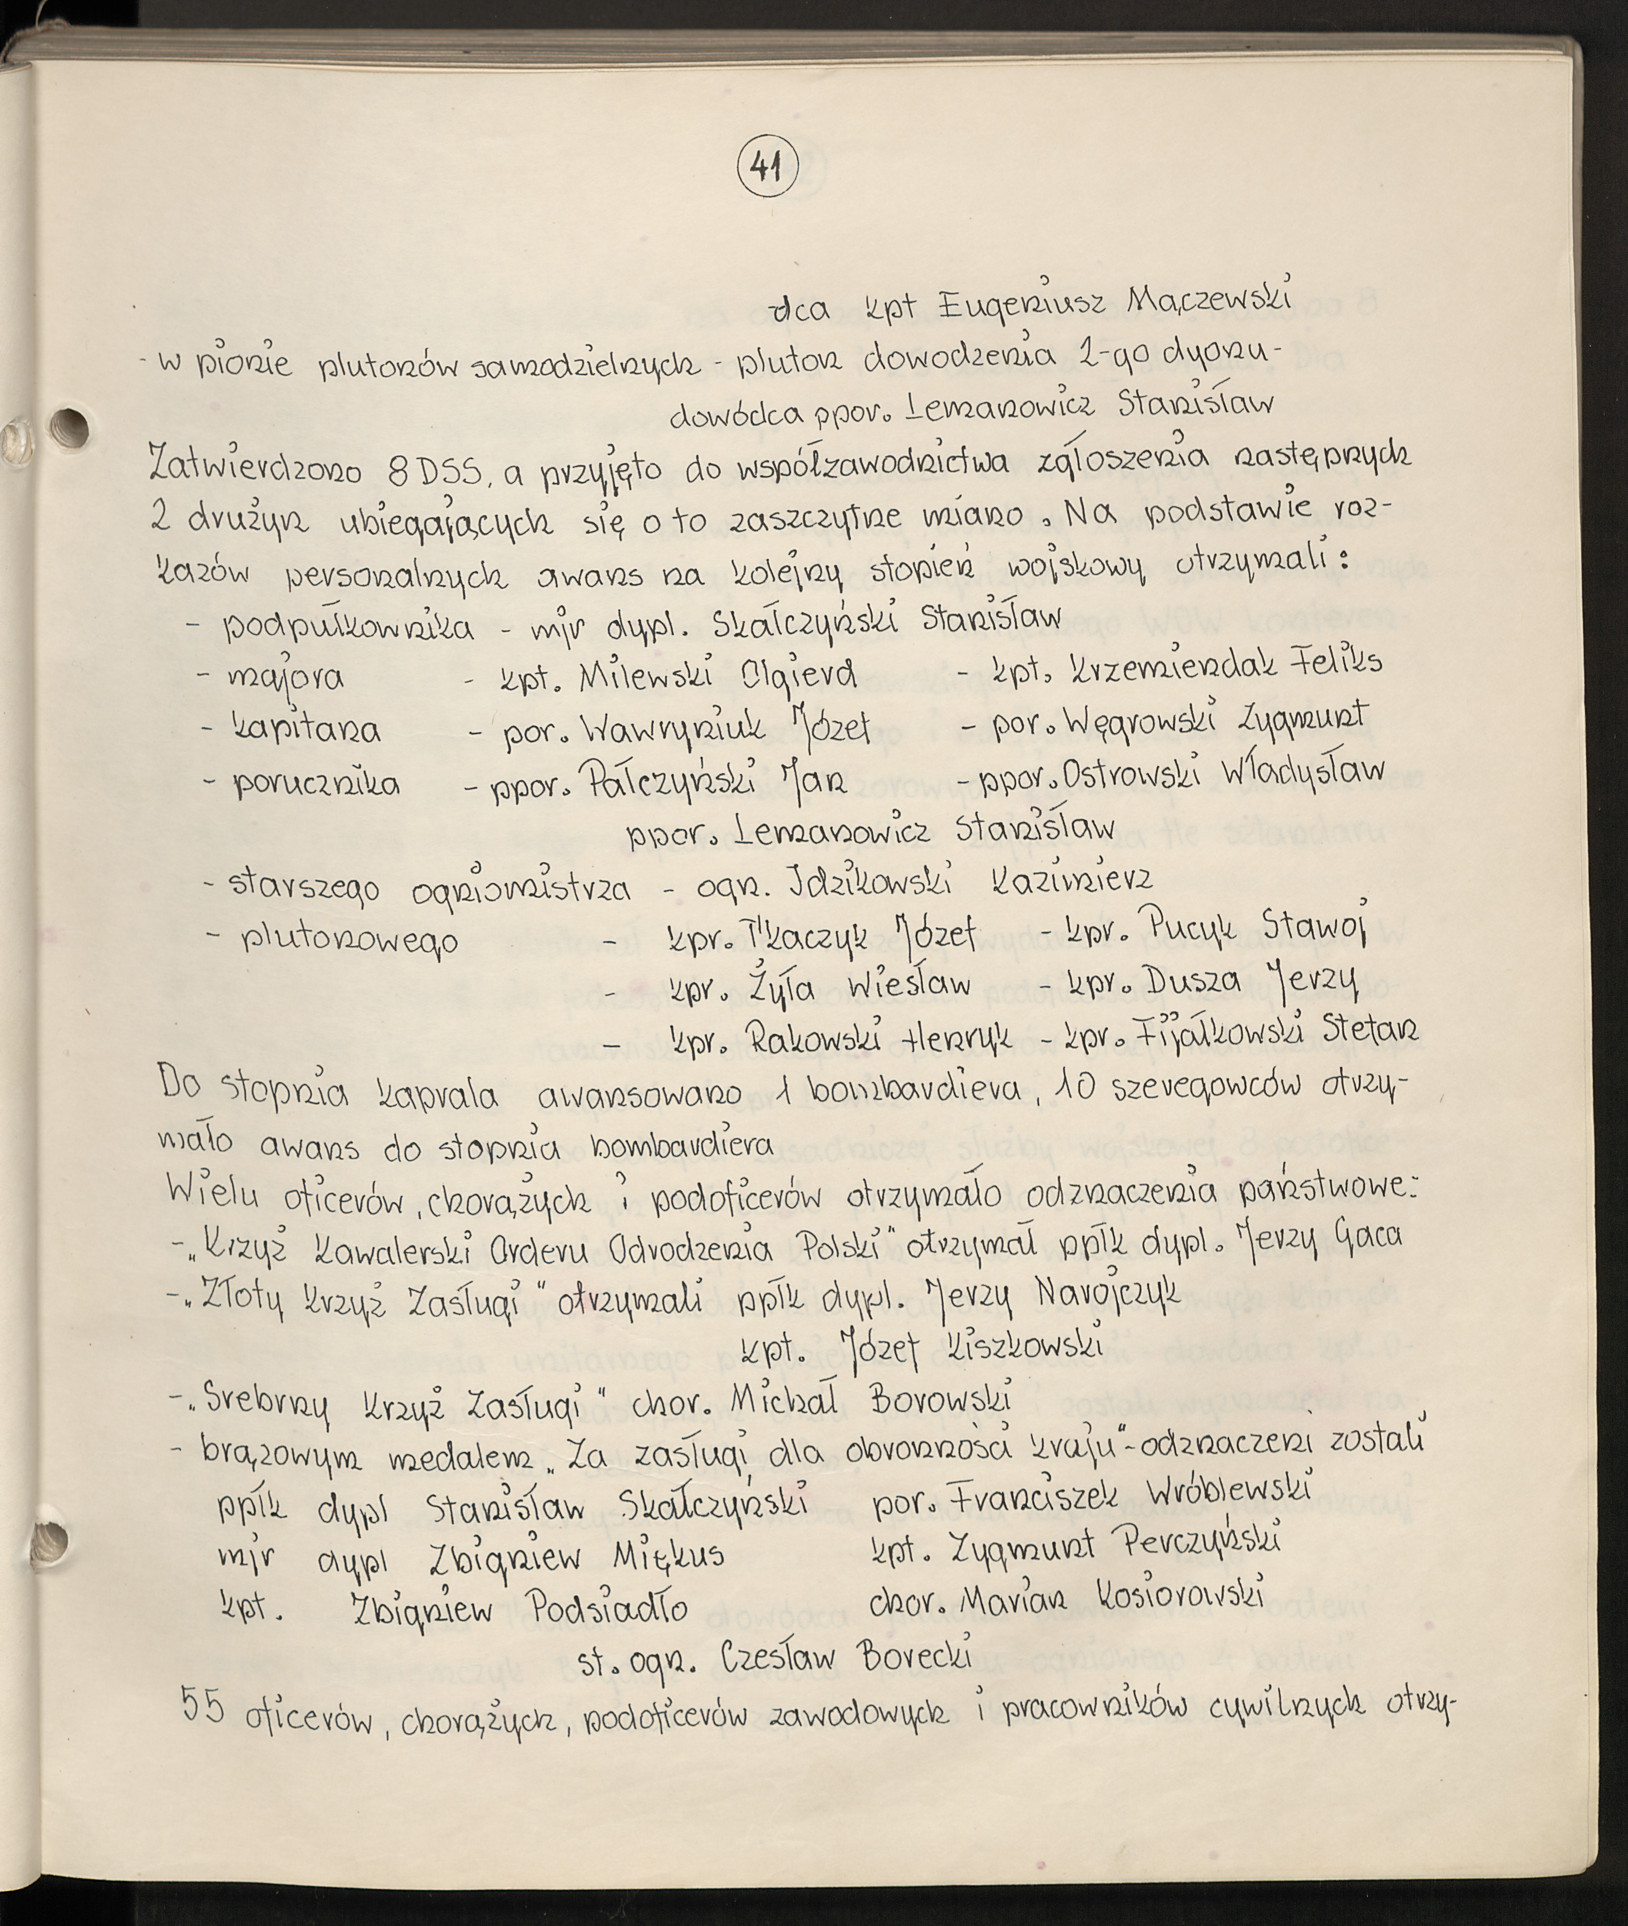 41
dca kpt Eugeniusz Mączewski
- w pionie plutonów samodzielnych - pluton dowodzenia 2-go dyonu -
dowódca ppor. Lemanowicz Stanisław
Zatwierdzono 8 DSS, a przyjęto do współzawodnictwa zgłoszenia następnych
2 drużyn ubiegających się o to zaszczytne miano. Na podstawie roz-
kazów personalnych awans na kolejny stopień wojskowy otrzymali:
- podpułkownika - mjr dypl. Skałczyński Stanisław
- majora - kpt. Milewski Olgierd - kpt. Krzemiendak Feliks
- kapitana - por. Wawryniuk Józef - por. Węgrowski Zygmunt
- porucznika - ppor. Pałczyński Jan - ppor. Ostrowski Władysław
ppor. Lemanowicz Stanisław
- starszego ogniomistrza - ogn. Idzikowski Kazimierz
- plutonowego - kpr. Tkaczyk Józef - kpr. Pucyk Stawoj
- kpr. Żyła Wiesław - kpr. Dusza Jerzy
- kpr. Rakowski Henryk - kpr. Fijałkowski Stefan
Do stopnia kaprala awansowano 1 bombardiera, 10 szeregowców otrzy-
mało awans do stopnia bombardiera
Wielu oficerów, chorążych i podoficerów otrzymało odznaczenia państwowe:
- „Krzyż Kawalerski Orderu Odrodzenia Polski" otrzymał ppłk dypl. Jerzy Gaca
- „Złoty Krzyż Zasługi" otrzymali ppłk dypl. Jerzy Narojczyk
kpt. Józef Kiszkowski
- „Srebrny Krzyż Zasługi" chor. Michał Borowski
- brązowym medalem „Za zasługi dla obronności kraju" - odznaczeni zostali
ppłk dypl Stanisław Skałczyński por. Franciszek Wróblewski
mjr dypl Zbigniew Miękus kpt. Zygmunt Perczyński
kpt. Zbigniew Podsiadło chor. Marian Kosiorowski
st. ogn. Czesław Borecki
55 oficerów, chorążych, podoficerów zawodowych i pracowników cywilnych otrzy-